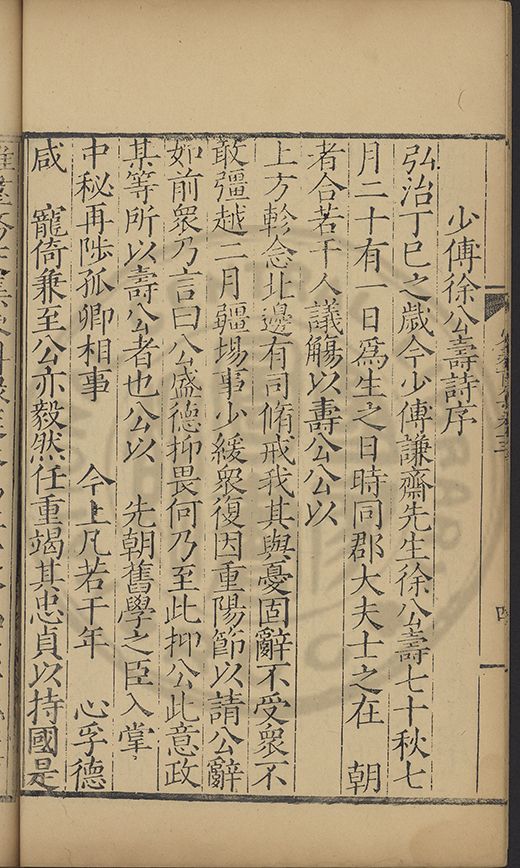 少傅徐公壽詩序
弘治丁巳之歲今少傅謙齋先生徐公壽七十秋七
月二十有一日爲生之日時同郡大夫士之在 朝
者合若干人議觴以壽公公以
上方軫念北邊有司脩戒我其與憂固辭不受衆不
敢彊越二月疆場事少緩衆復因重陽節以請公辭
如前衆乃言曰公盛德抑畏何乃至此抑公此意政
某等所以壽公者也公以 先朝舊學之臣入掌
中秘再陟孤卿相事 今上凡若干年 心孚德
咸 寵倚兼至公亦毅然任重竭其忠貞以持國是